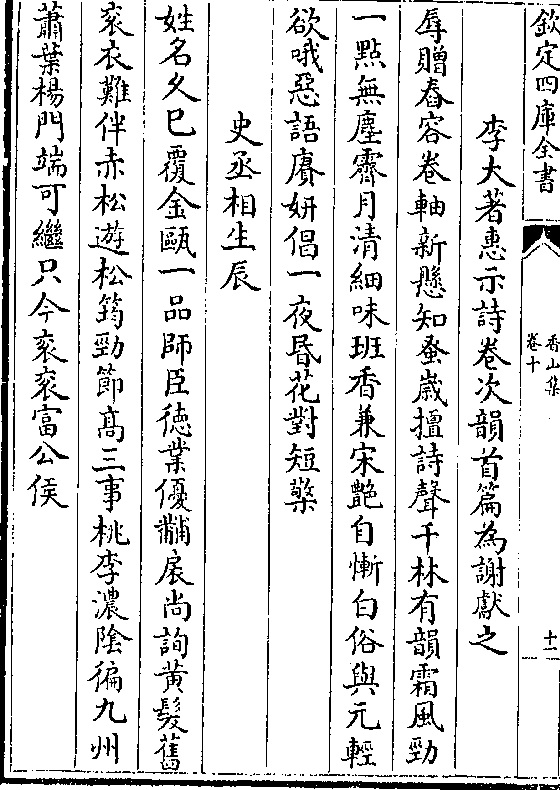 欽定四庫全書
香山集
卷十
十一
李大著惠示詩卷次韻首篇為謝獻之
辱贈舂容卷軸新懸知蚤歲擅詩聲千林有韻霜風勁
一點無塵霽月清細味班香兼宋艷自慚白俗與元輕
欲哦惡語賡妍倡一夜昬花對短檠
史丞相生辰
姓名久已覆金甌一品師臣徳業優黼扆尚詢黄髮舊
衮衣難伴赤松遊松筠勁節髙三事桃李濃陰徧九州
蕭葉楊門端可繼只今衮衮富公侯